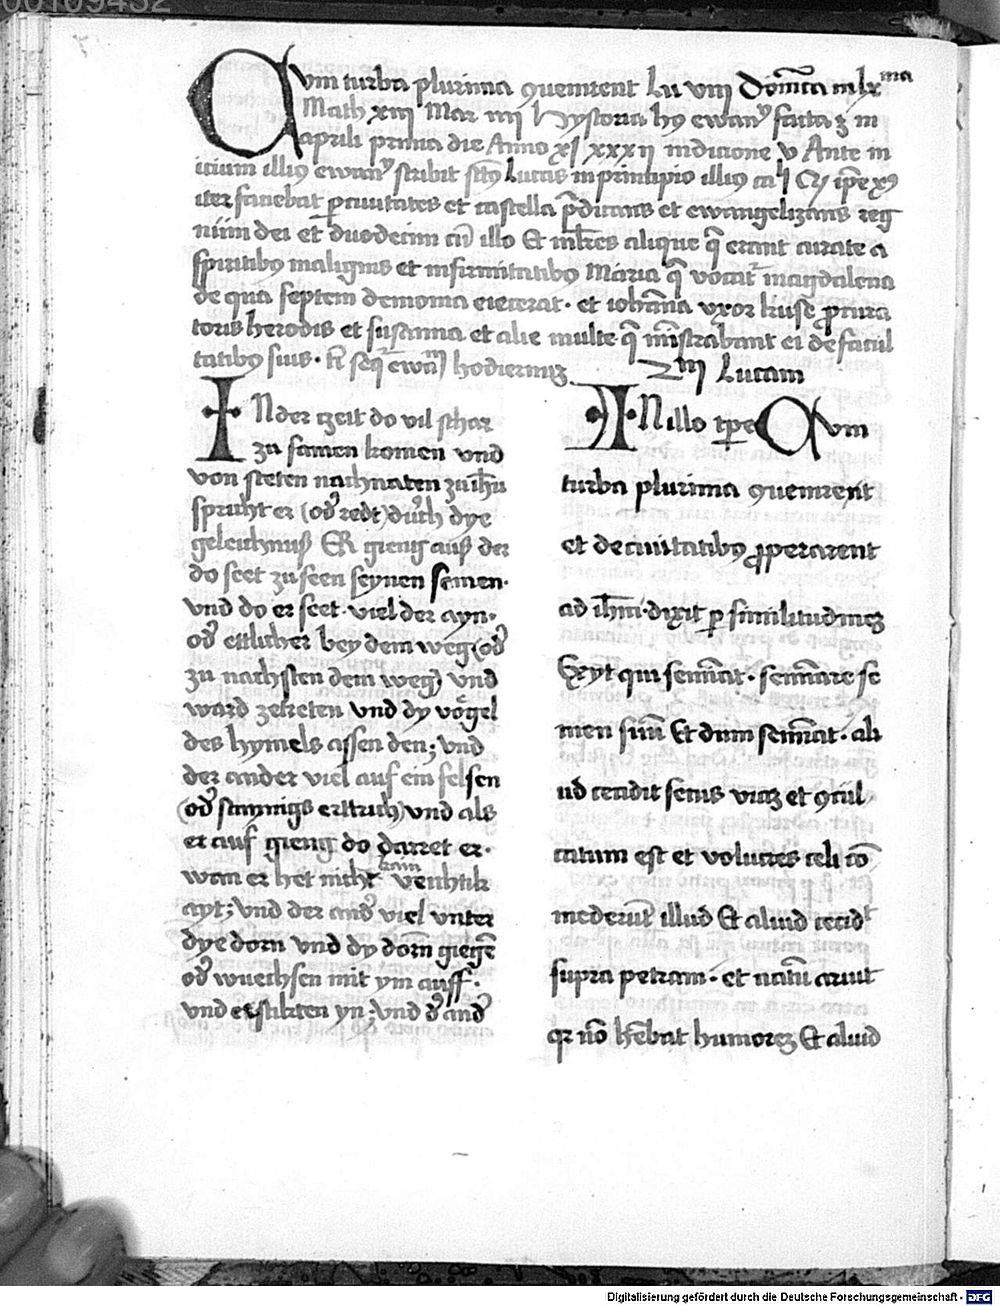 00109432
Cum turba plurima ꝯuenirent Lu viij Domīca in lxma
Math xiij Mar iiij Hystoria hꝰ ewanꝰ facta ē in
aprili prima die Anno xp̄i xxxij indictione v Ante in
icium illiꝰ ewanꝰ scribit sctꝰ Lucas in principio illiꝰ ca
iter faciebat ꝑ ciuitates et castella p̄dicans et ewangelizans reg
nūm dei et duodecim cū illo Et mlr̄es alique q̄ erant curate a
spiritibꝰ malignis et infirmitatibꝰ Maria q̄ vocat͛ magdalena
de qua septem demonia eiecerat · et iohāna vxor kuse ꝓcura
toris herodis et susanna et alie multe q̄ mīstrabant ei de facul
tatibꝰ suis · sequit͛ ewanꝰ hodiernuꝫ
Lucam
IN der tzeit do vil schar
zu samen komen vnd
von steten nachnaten zu ih̄u
spricht er (od͛ redt) durch dye
geleichnuß ER gieng auß der
do seet zu seen seynen samen ·
vnd do er seet · viel der ayn ·
od͛ ettlicher bey dem weg (od͛
zu nachsten dem weg) vnd
ward zetreten vnd dy vogel
des hymels assen den ; vnd
der ander viel auf ein felsen
(od͛ staynigs ertrich) vnd als
er auf gieng do darret er ·
wan er het nicht kain veuchtik
ayt ; vnd der and͛ viel vnter
dye dorn vnd dy dorn̄ giegē
od͛ wuechsen mit ym auff ·
vnd erstikten yn ; vnd d͛ and͛
IN illo tꝑe Cum
turba plurima ꝯuenirent
et de ciuitatibꝰ ꝓperarent
ad ih̄m · dixit ꝑ similitudineꝫ
Exyt qui semīat · semīare se
men suū Et dum semīat · ali
ud cecidit secus viaꝫ et ꝯcul
catum est et volucres celi co
mederūt illud Et aliud cecidt
supra petram · et natū aruit
qꝛ nō hēbat humoreꝫ Et aliud
Digitalisierung gefördert durch die Deutsche Forschungsgemeinschaft - DFG